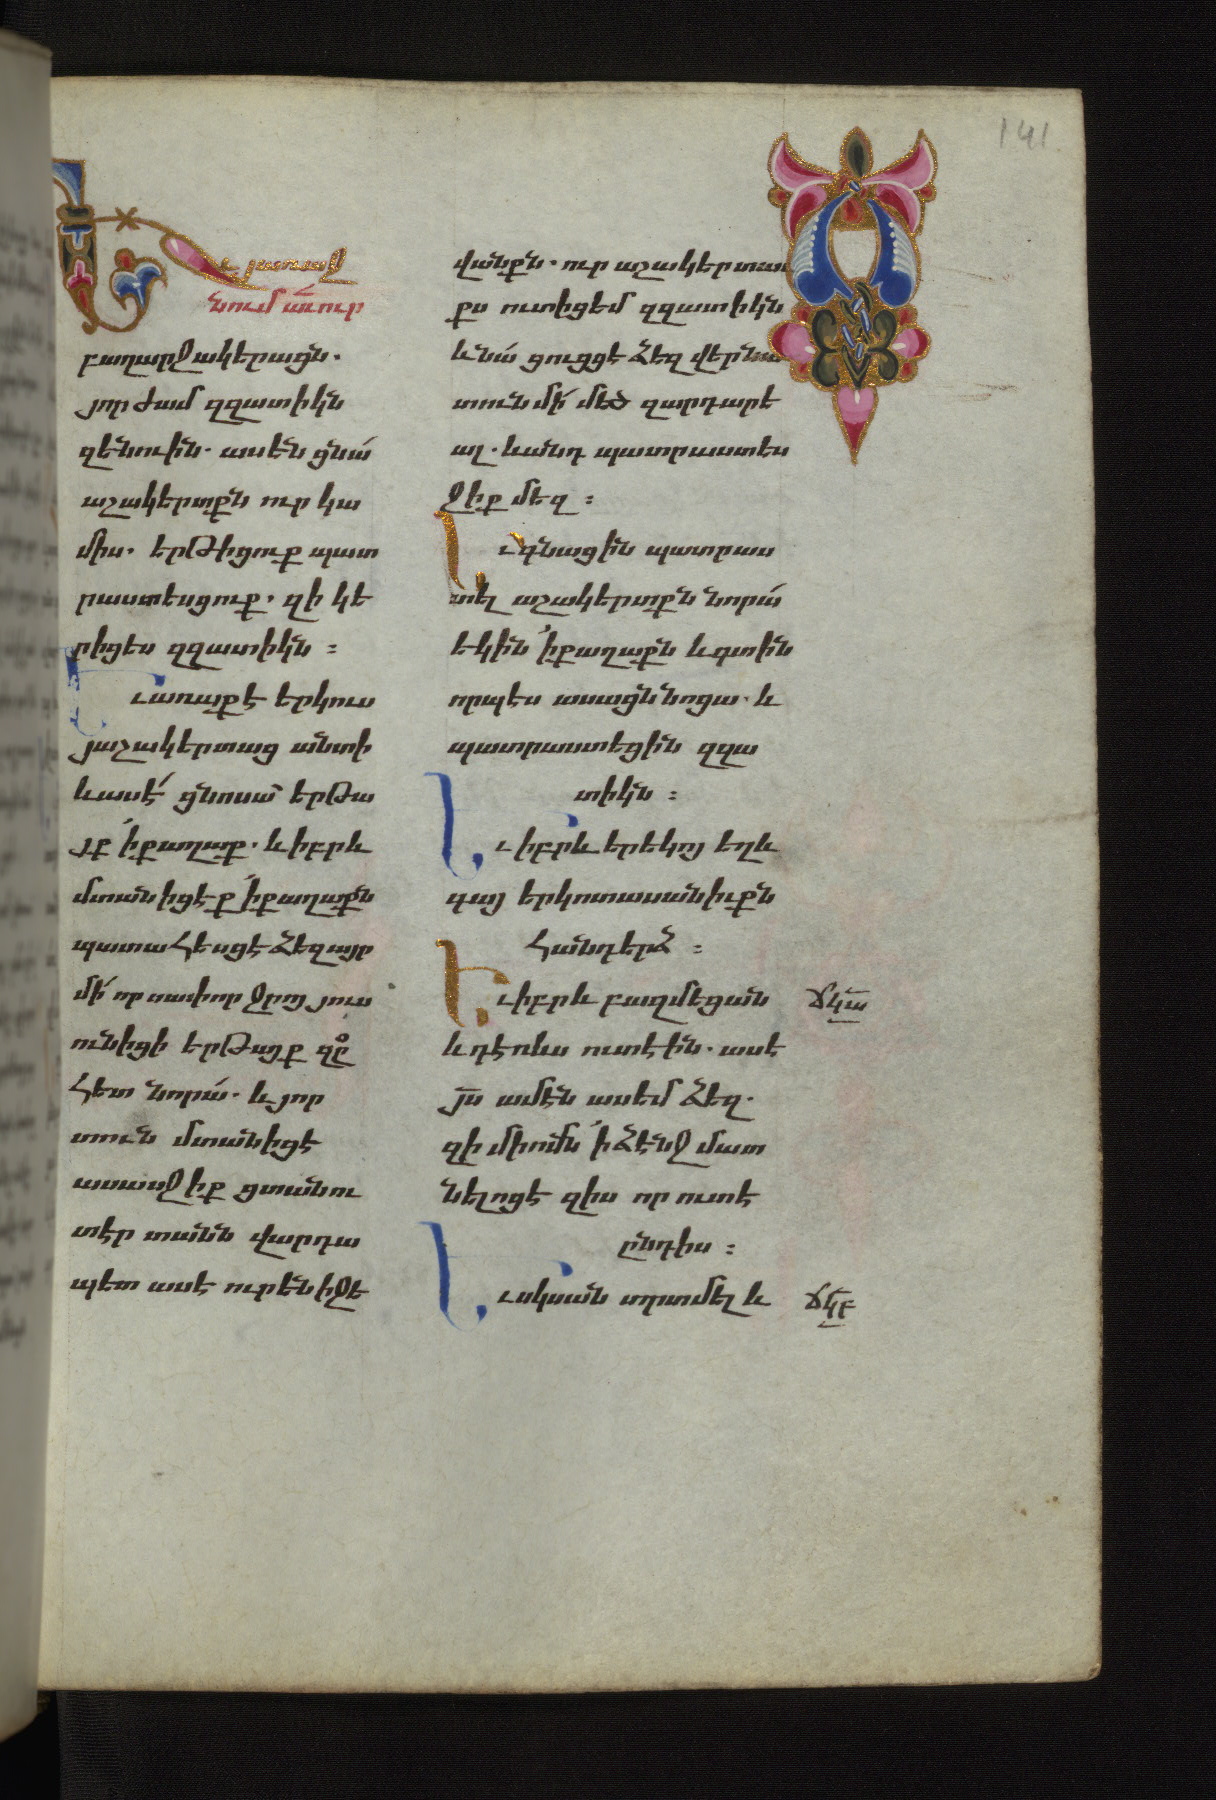 141
Եւ յառաջ
նում աւուր
բաղարջակերացն.
յոր ժամ զզատիկն
զենուին. ասեն ցնա՛
աշակերտքն ուր կա
միս. երթիցուք պատ
րաստեսցուք. զի կե
րիցես զզատիկն :
Եւ առաքէ երկուս
յաշակերտաց անտի
և ասէ՛ ցնոսա՝ երթա
յք ՛ի քաղաք. և իբրև
մտանիցէք ՛ի քաղաքն
պատահեսցէ ձեզ այր
մի՛ որ սափոր ջրոյ յուս
ունիցի երթայք զը
հետ նորա՛. և յոր
տուն մտանիցէ
ասասջիք ցտանու
տէր տանն վարդա
պետ ասէ ուր են իջե
վանքն. ուր աշակերտաւ
քս ուտիցեմ զզատիկն
և նա՛ ցուցցէ ձեզ վերնա
տուն մի՛ մեծ զարդարե
ալ. և անդ պատրաստես
ջիք մեզ :
Եւ գնացին պատրաս
տել աշակերտքն նորա՛
եկին ՛ի քաղաքն և գտին
որպէս ասացն նոցա. և
պատրաստեցին զզա
տիկն :
Եւ իբրև երեկոյ եղև
գայ երկոտասանիւքն
հանդերձ :
Եւ իբրև բազմեցան ՃԿԱ
և դէռևս ուտէին. ասէ
յս ամէն ասեմ ձեզ.
զի միոմն ՛ի ձէնջ մատ
նելոցէ զիս որ ուտէ
ընդիս :
Եւ սկսան տրտմել և ՃԿԲ